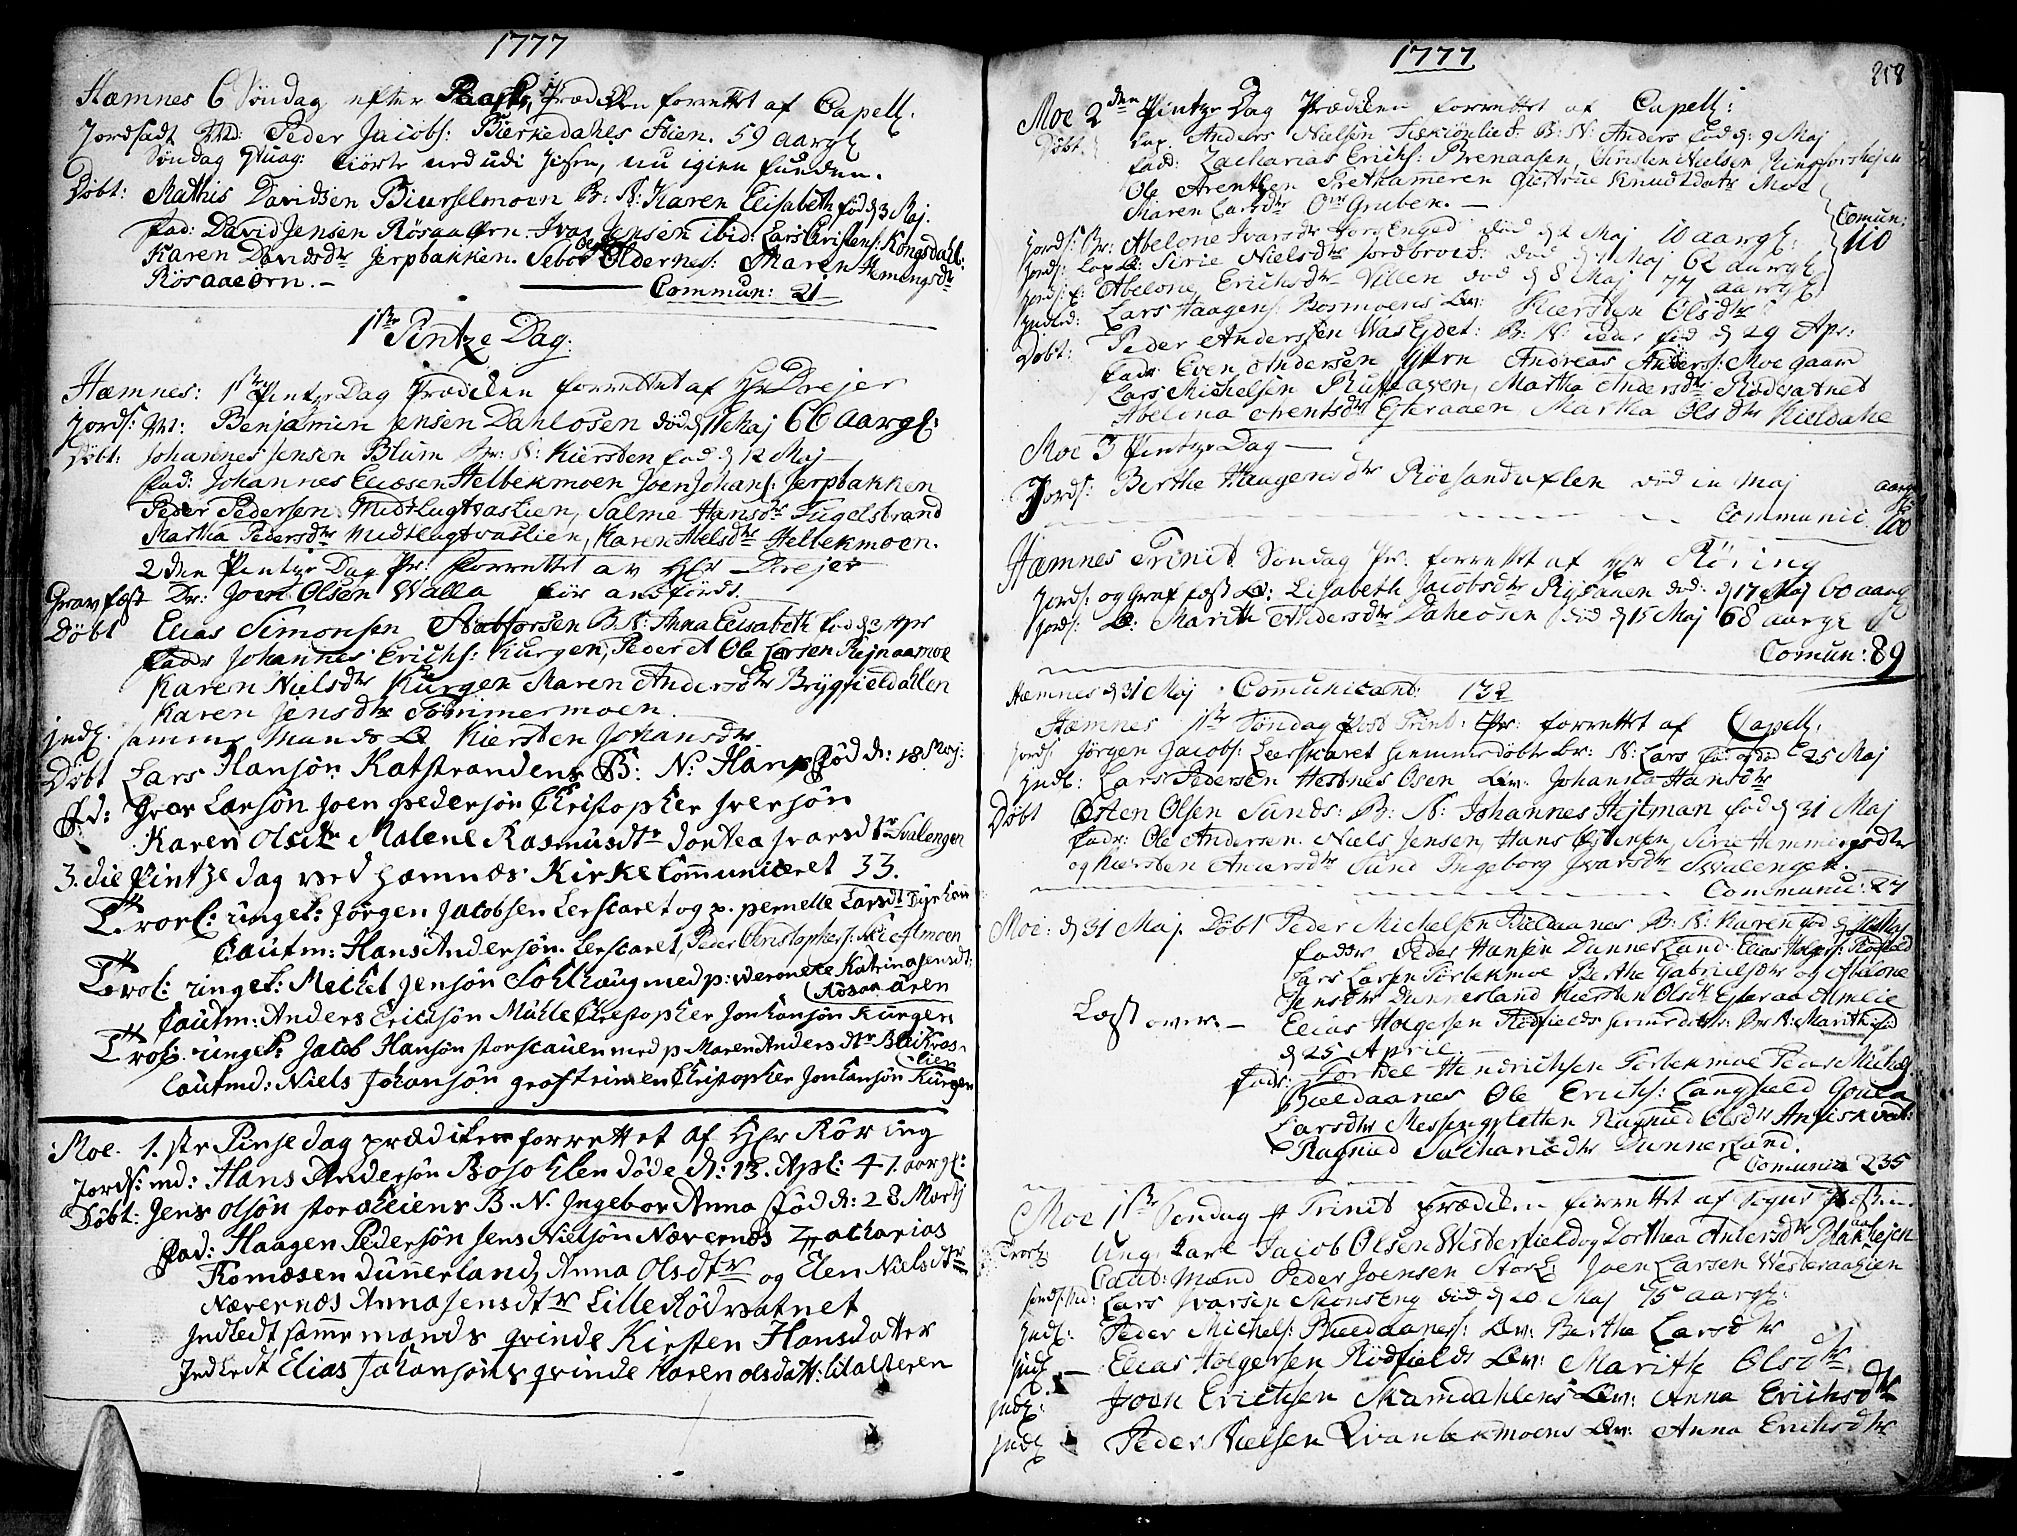 1777
Hæmnes 6 Søndag efter Paaske, Prædiken forrettet af Capell.
Jordfædt Md: Peder Jacobs: Bierkedahls Søen. 59 aargl
Søndag 7tuag: kiørte ned udi Jissen, nu igien funden.
Døbt: Mathis Davidsen Biurselmoen B: N: Karen Elisabeth fød d 3 Maj.
Fad: David Jensen Røsaa Ørn. Ivar Jensen ibid: Lars Christens: Kongsdahl:
Karen Davidsdr Jerpbakken. Sebor Oldernes: Maren Hemingsdr
Røsaaeørn.-
Commun: 21
1ste Pintze Dag:
Hæmnes: 1ste Pintze Dag Prædiken forrettet af Hr Drejer
Jords: Md: Benjamin Jensen Dahlosen død d 11 Maj 66 aargl:
Døbt: Johannes Jensen Blum Br: N: Kiersten fød d 12 Maj
Fad: Johannes Eliæsen Helbekmoen Joen Johans: Jerpbakken
Peder Pedersen Midtlugtvastien, Salme Hansdr Fugelstrand
Martha Pedersdr Midtlugtvastien, Karen Abelsdr Helbekmoen.
2den Pintze Dag Pr: forrettet av Hr Drejer
Gravfæst Dr: Joen Olsen Walla før anførdt.
Døbt Elias Simonsen Stabforsen B N: Anna Elisabeth fød d 3 Apr
Fadr Johannes Erichs: Kurgen, Peder et Ole Larsen Rejnaamoe
Karen Nielsdr Kurgen Maren Andersdr Brygfieldahlen
Karen Jensdr Tømmermoen.
Jndl: samme Mands Q Kiersten Johansdr
Døbt Lars Hansøn Katstrandens B: N: Hans Fød d: 18 Maj:
Fd: Ivar Larsøn Joen pedersøn Christopher Iversøn
Karen Olsdtr Malene Rasmusdtr Dortea Ivarsdtr Svalengen
3. die Pintze dag ved Hæmnæs Kirke Communiceret 33.
Trorl: unget: Jørgen Jacobsen Lerscaret og p. pernelle Larsdt Dyrhou
Cautm: Hans Andersøn Lerscaret, Peder Christophers:
Trol: unget: Mechel Jensøn Solhaug med p: Weroneke Katrina Jensdt:
Røsaa Æren
Cautm: Anders Erichsøn Mühle Christopher Jonhansøn Kurgen
Trol: unget: Jacob Hansøn storscauen med p Maren Anders dtr Bleikvas-
lien
Cautmd: Niels Johansøn groftrimen Christopher Jonhansøn Kurgen
Moe. 1. ste Pinse dag prædiken forrettet af Hr Røring
Jords: md: Hans Andersøn Bosoklen døde d: 13. Apl: 47. aargl:
Døbt: Jens Olsøn storeliens B. N. Ingebor Anna Fød d: 28 Martj
Fad: Haagen Pedersøn Jens Nielsøn Nævernæs Zacharias
Tomæsen Dunnerland, Anna Olsdtr og Elen Nielsdtr
Nævernæs Anna Jensdtr Lille Rødvatnet
Jndledt samme mands qvinde Kirsten Hansdatter
Jndledt Elias Johansøns qvinde Karen olsdatt: litalteren
1777
218
Moe 2den Pintze Dag Prædiken forrettet af Capell:
Døbt: Lap. Anders Nielsen B: N: Anders fød d: 9 Maj
Fadd: Zacharias Erichs: Brenaasen, Kirsten Nielsen
Ole Arentsen Prethameren Giertrue Knudtdatr Moe
Maren Larsdr Ovr Gruben.-
Jords: Br: Abelone Ivarsdr død d 2 Maj 10 aargl:
Comun:
110
Jords: Lap Q: Sirie Nielsdr Jordbroed: død d 7 Maj 62 aargl
Jords: E: Abelone Erichsdr Villen død d 8 Maj 77 aargl
Jndled: Lars Haagens: Bosmoens Qv: Kiersten Olsdr
Døbt: Peder Anderssen Was Ejdet: B: N: fød d 29 Apr:
Fadr Even Andersen Andreas Anders: Moe gaard
Lars Michelsen Rufsaagen, Martha Andersdr Rødvatnet
Abelona Arentsdr Ejteraaen Martha Olsdr Kieldahl
Moe 3 Pintze Dag-
Jords: Berthe Haugensdr Røesandueflen død in Maj aargl
Communic. 100
Hæmnes Trinit Søndag Pr. forrettet af Hr Røring
Jords: og Graf fæst Q: Lisabeth Jacobsdr Rysauen død: d 17 Maj 60 aarg
Jords: Q: Marith Andersdr Dahlosen død d 15 Maj 68 aargl
Comun: 89
Hæmnes d 31 Maj Communicant: 132
Hæmnes 1ste Søndag post Trinit: Pr: forrettet af Capell.
Jords Jørgen Jacobs: Leerskaret hiemmedøbte Br: N: Lars fød og død 25 Maj
Jndl: Lars Pedersen Hestnes Osen Qv: Johanna Hansdr
Døbt Østen Olsen Sunds: B: N: Johannes Hejtman fød d 31 Maj
Fadr: Ole Andersen. Niels Jensen, Hans Østensen, Sirie Hemmingsdr
og Kiersten Andersdr Sund Ingeborg Ivarsdr Svalenget.
Communic: 27
Moe: d 31 Maj. Døbt Peder Michelsen Bieldaanes B: N: Karen fød d Maj
Fadr Peder Hansen Dunnerland Elias Holgers: Rødfield
Lars Larsen Tørbekmoe Berthe Gabrielsdr og Abelone
Jensdr Dunnerland Kiersten Olsdr Ejteraa Amlie
Læst over.- Elias Holgersen Rødfields hiemedøbte: Br N: Marith fød
d 25 April
Fadr: Torkel Hendrichsen Tørbekmoe Peder Michels
Bieldaanes Ole Erichs: Langfield Goura
Larsdr Messingsletten Ragnild Olsdr
Ragnild Sachariædr Dunnerland.
Comunic 235
Moe 1ste Søndag p Trinit prædiken forrettet af Sogne Præsten
Trorl: Ung Karl Jacob Olsen Westerfield og Dorthea Andersdr Blakhejen
Caut: Mænd Peder Joensen Storl: Joen Larsen Westeraalien
Jords: Md: Lars Ivarsen Skonseng død d 20 Maj 75 aargl:
Jndl: Peder Michels: Bieldaanes: Qv: Berthe Larsdr
Jndl - Elias Holgersen Rødfields Qv: Marith Olsdr
Jndl: Joen Erichsen Skamdahlens Qv: Anna Erichsdr
Jndl Peder Nielsen Qvanbekmoens Qv: Anna Erichsdr